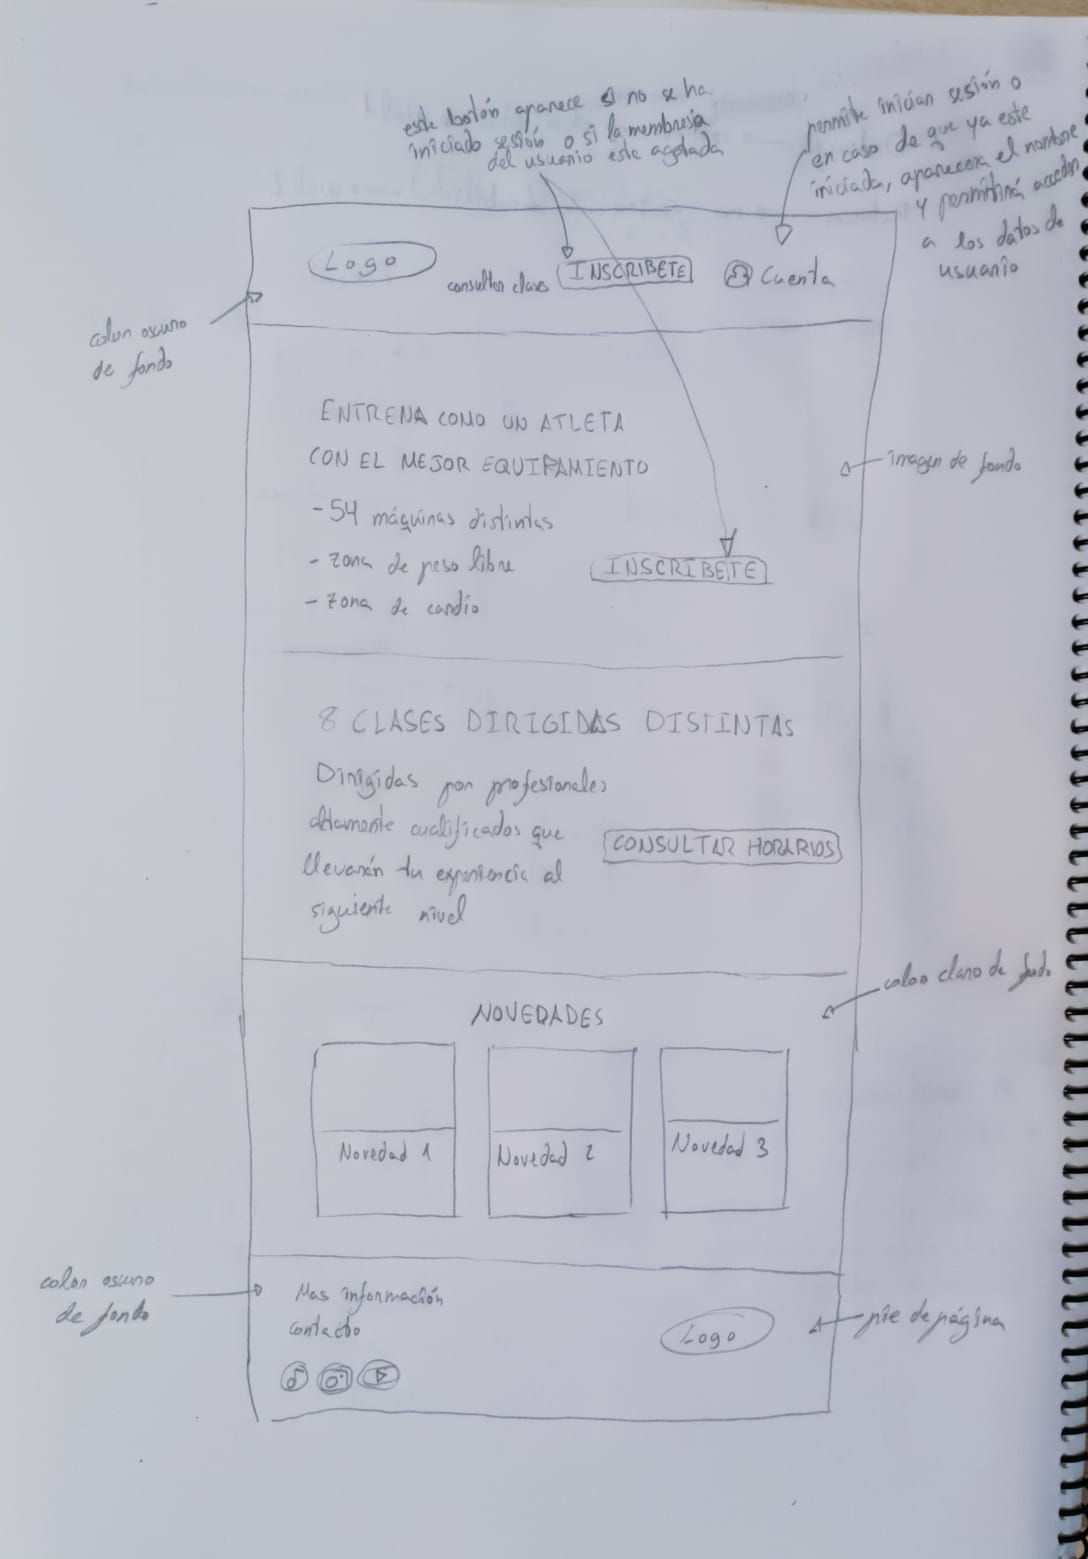 este botón aparece si no se ha
iniciado sesión o si la membresia
del usuario este agotada
permite iniciar sesión o
en caso de que ya este
iniciada, aparecera el nombre
y permitirá acceder
a los datos de
usuario
Logo
consultar clases
INSCRIBETE
Cuenta
color oscuro
de fondo
ENTRENA COMO UN ATLETA
CON EL MEJOR EQUIPAMIENTO
- 54 máquinas distintas
- zona de peso libre
- zona de cardio
INSCRIBETE
imagen de fondo
8 CLASES DIRIGIDAS DISTINTAS
Dirigidas por profesionales
altamente cualificados que
llevarán tu experiencia al
siguiente nivel
CONSULTAR HORARIOS
color claro de fondo
NOVEDADES
Novedad 1
Novedad 2
Novedad 3
color oscuro
de fondo
Mas información
contacto
Logo
pie de página